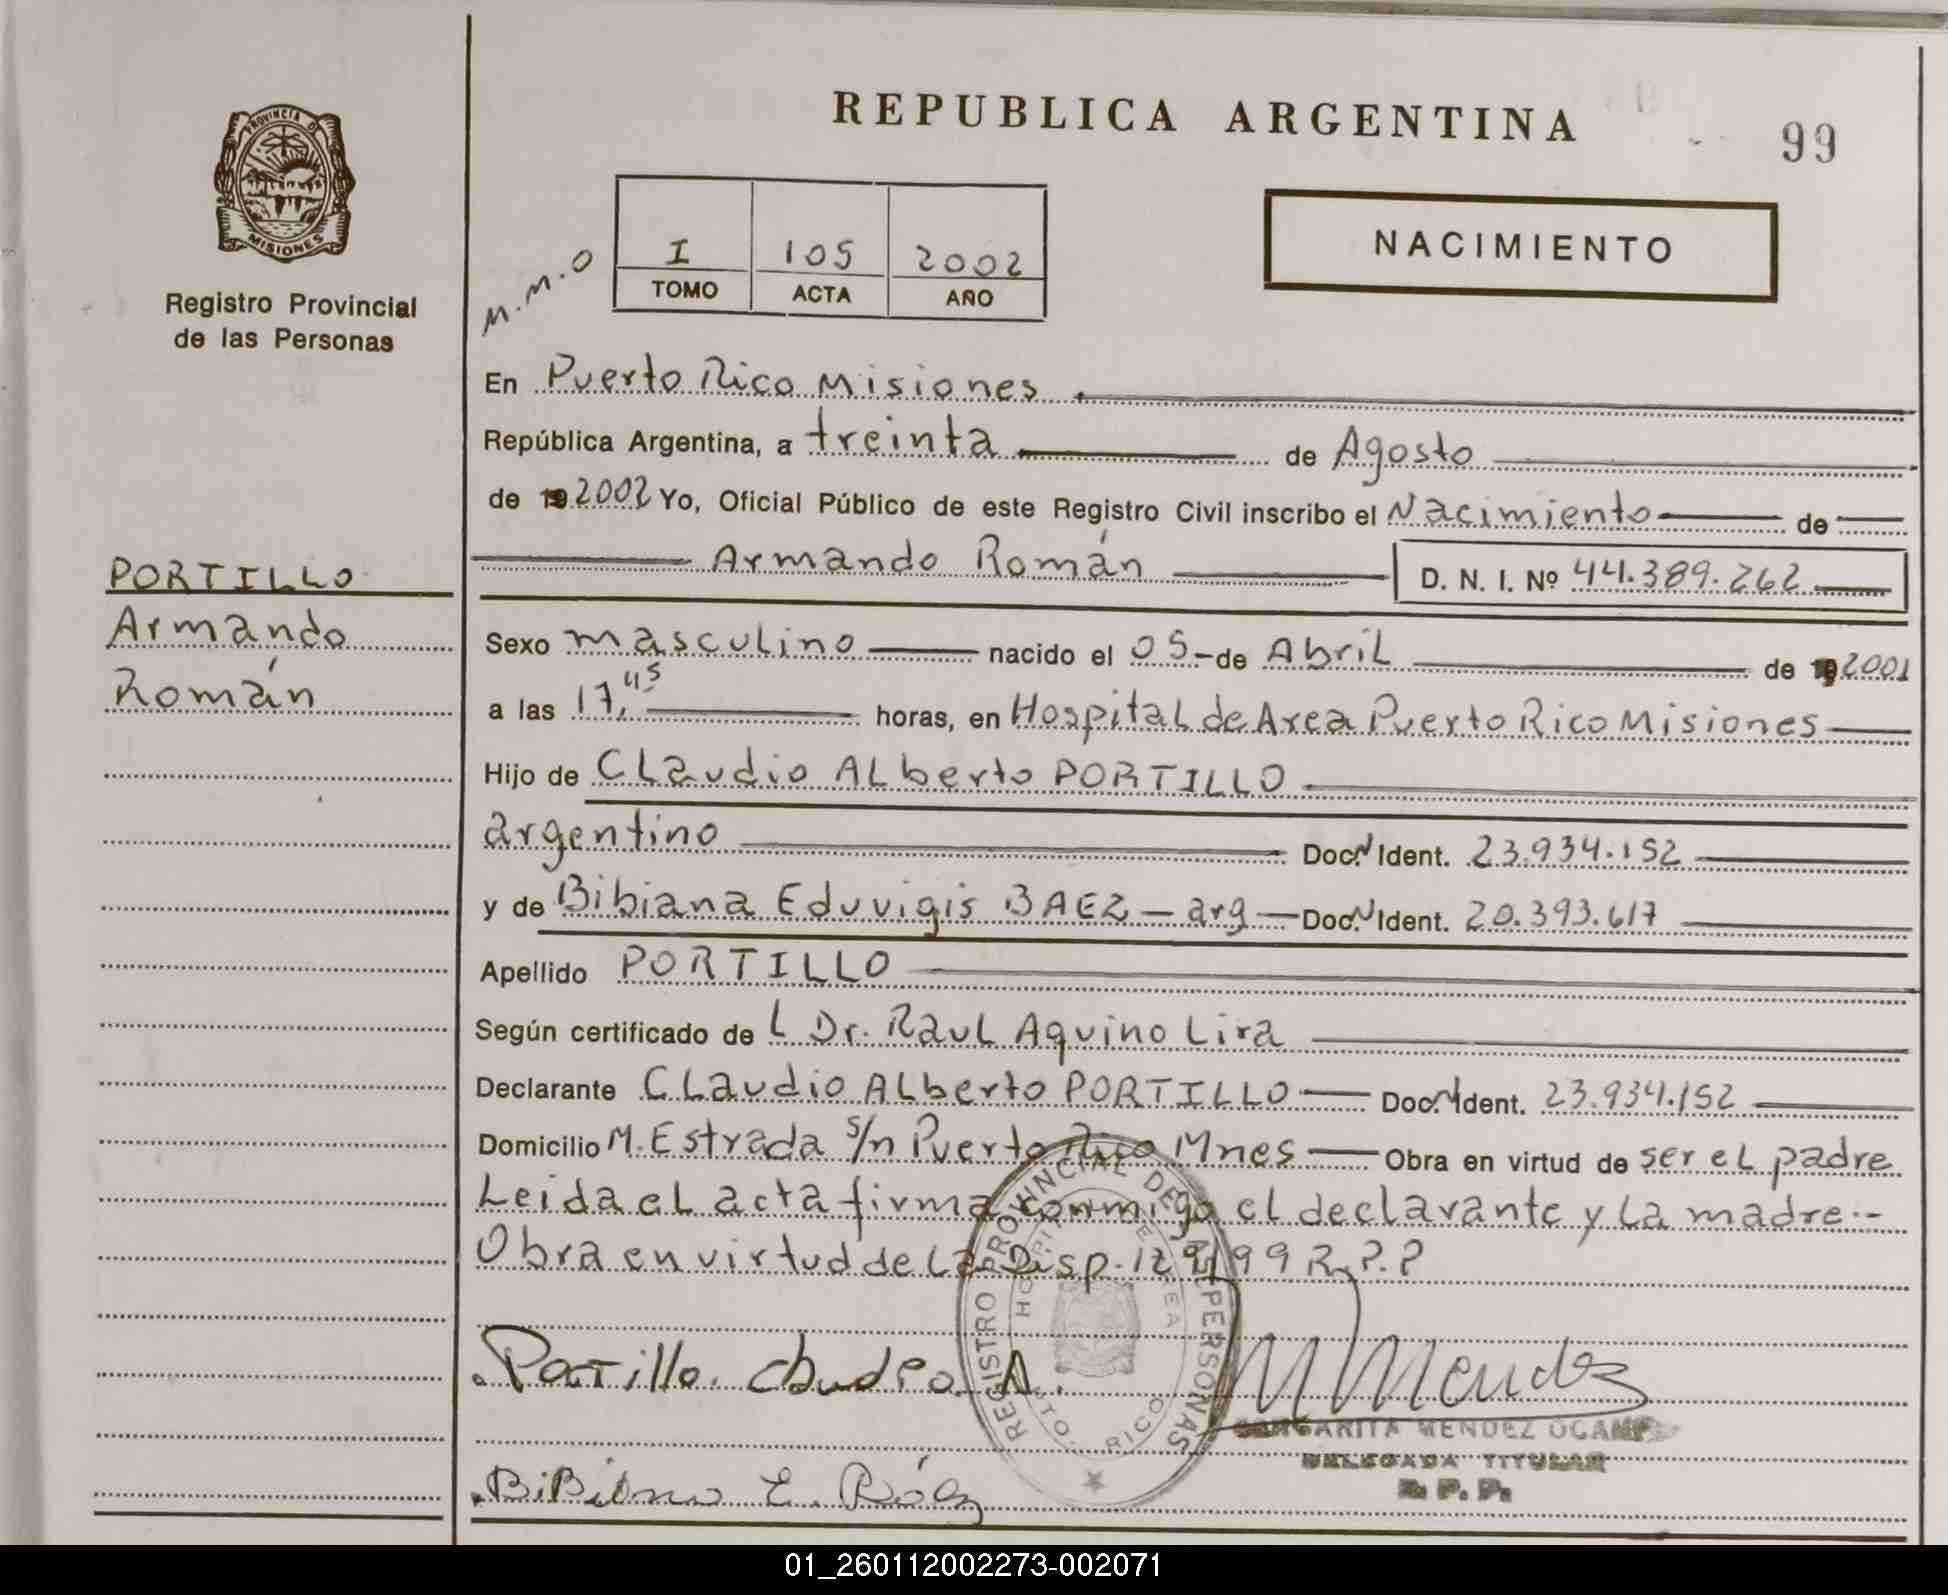 REPUBLICA ARGENTINA
99
PROVINCIA D
MISIONES
Registro Provincial
de las Personas
M.M.O
I 105 2002
TOMO ACTA AÑO
NACIMIENTO
En Puerto Rico Misiones
República Argentina, a treinta de Agosto
de 19 2002 Yo, Oficial Público de este Registro Civil inscribo el Nacimiento de
Armando Román D. N. I. Nº 44.389.262
PORTILLO
Armando
Román
Sexo masculino nacido el 05 - de Abril de 19 2001
a las 17,45 horas, en Hospital de Area Puerto Rico Misiones
Hijo de Claudio Alberto PORTILLO
argentino Doc. N Ident. 23.934.152
y de Bibiana Eduvigis BAEZ - arg - Doc. N Ident. 20.393.617
Apellido PORTILLO
Según certificado de L Dr. Raul Aquino Lira
Declarante Claudio Alberto PORTILLO Doc. N Ident. 23.934.152
Domicilio M. Estrada s/n Puerto Rico Mnes Obra en virtud de ser el padre
Leida el acta firma conmigo el declarante y la madre.-
Obra en virtud de la Disp. 129/99 R.P.P
REGISTRO PROVINCIAL DE PERSONAS
PTO. RICO
Portillo. Claudio A.
M Mendez
MARGARITA MENDEZ OCAMPO
DELEGADA TITULAR
R. P. P.
Bibiana E. Báez
01_260112002273-002071